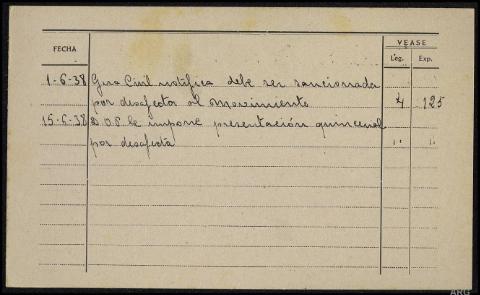 FECHA VEASE
Leg. Exp.
1-6-38 Gua Civil notifica debe ser sancionada
por desafecta al movimiento 4 125
15-6-38 D.O.P. le impone presentación quincenal
por desafecta " "
ARG